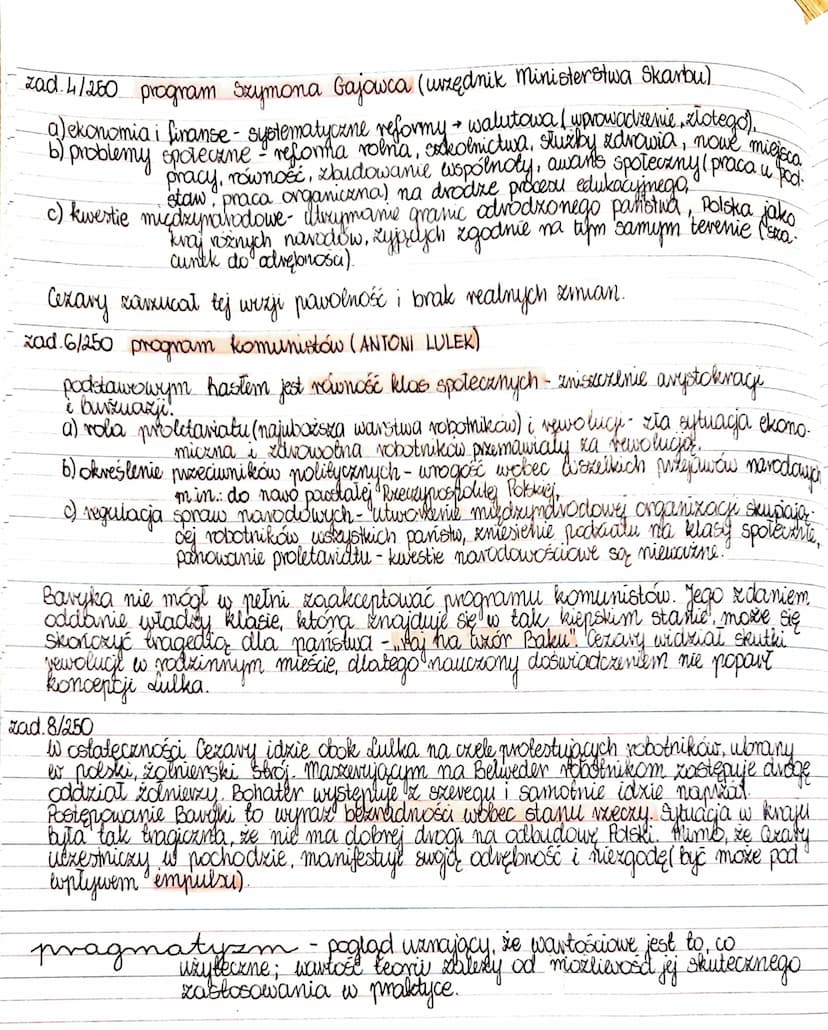 zad. 4/250 program Szymona Gajowca (urzędnik Ministerstwa Skarbu)
a) ekonomia i finanse - systematyczne reformy → walutowa (wprowadzenie złotego),
b) problemy społeczne - reforma rolna, szkolnictwa, służby zdrowia, nowe miejsca
pracy, równość, zbudowanie wspólnoty, awans społeczny (praca u pod-
staw, praca organiczna) na drodze procesu edukacyjnego,
c) kwestie międzynarodowe - utrzymanie granic odrodzonego państwa, Polska jako
kraj różnych narodów, żyjących zgodnie na tym samym terenie (sza-
cunek do odrębności).
Cezary zarzucał tej wizji powolność i brak realnych zmian.
zad. 6/250 program komunistów (ANTONI LULEK)
podstawowym hasłem jest równość klas społecznych - zniszczenie arystokracji
i burżuazji.
a) rola proletariatu (najuboższa warstwa robotników) i rewolucji - zła sytuacja ekono-
miczna i zdrowotna robotników przemawiały za rewolucją,
b) określenie przeciwników politycznych - wrogość wobec wszelkich przejawów narodowych
m.in.: do nowo powstałej Rzeczypospolitej Polskiej,
c) regulacja spraw narodowych - utworzenie międzynarodowej organizacji skupiają-
cej robotników wszystkich państw, zniesienie podziału na klasy społeczne,
panowanie proletariatu - kwestie narodowościowe są nieważne.
Baryka nie mógł w pełni zaakceptować programu komunistów. Jego zdaniem
oddanie władzy klasie, która znajduje się w tak kiepskim stanie, może się
skończyć tragedią dla państwa - „raj na wzór Baku". Cezary widział skutki
rewolucji w rodzinnym mieście, dlatego nauczony doświadczeniem nie poparł
koncepcji Lulka.
zad. 8/250
W ostateczności Cezary idzie obok Lulka na czele protestujących robotników, ubrany
w polski, żołnierski strój. Maszerującym na Belweder robotnikom zastępuje drogę
oddział żołnierzy. Bohater występuje z szeregu i samotnie idzie naprzód.
Postępowanie Baryki to wyraz bezradności wobec stanu rzeczy. Sytuacja w kraju
była tak tragiczna, że nie ma dobrej drogi na odbudowę Polski. Mimo, że Cezary
uczestniczy w pochodzie, manifestuje swoją odrębność i niezgodę (być może pod
wpływem impulsu).
pragmatyzm - pogląd uznający, że wartościowe jest to, co
użyteczne; wartość teorii zależy od możliwości jej skutecznego
zastosowania w praktyce.